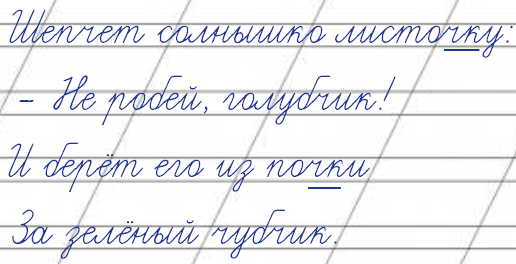 Шепчет солнышко листочку:
- Не робей, голубчик!
И берёт его из почки
За зелёный чубчик.